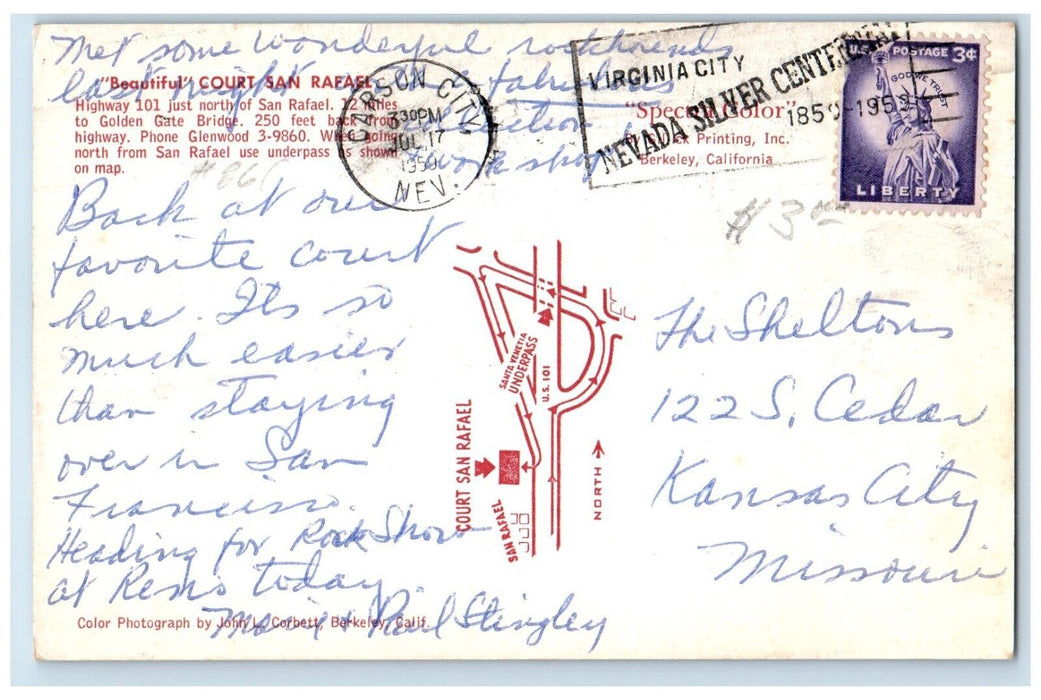 Met some wonderful rockhounds
last night - a fabulous
collection &
workshop
"Beautiful" COURT SAN RAFAEL
Highway 101 just north of San Rafael. 12 miles
to Golden Gate Bridge. 250 feet back from
highway. Phone Glenwood 3-9860. When going
north from San Rafael use underpass as shown
on map.
Back at our
favorite court
here. Its so
much easier
than staying
over in San
Francisco.
Heading for Rock Show
at Reno today.
Color Photograph by John L. Corbett, Berkeley, Calif.
Stingley
CARSON CITY
330PM
JUL 17
1959
NEV.
VIRGINIA CITY
NEVADA SILVER CENTENNIAL
1859-1959
"Special Color"
Printing, Inc.
Berkeley, California
U.S. POSTAGE 3¢
IN GOD WE TRUST
LIBERTY
$3.00
SANTA VENETIA
UNDERPASS
U.S. 101
COURT SAN RAFAEL
SAN RAFAEL
NORTH
The Sheltons
122 S. Cedar
Kansas City
Missouri